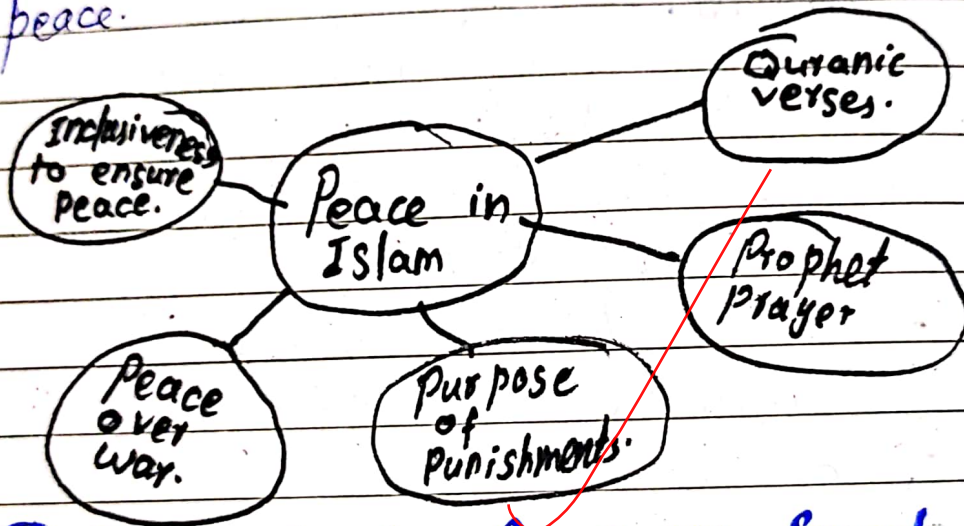 peace.
Inclusiveness
to ensure
peace.
Peace in
Islam
Quranic
verses.
Prophet
prayer
Peace
over
war.
Purpose
of
Punishments.